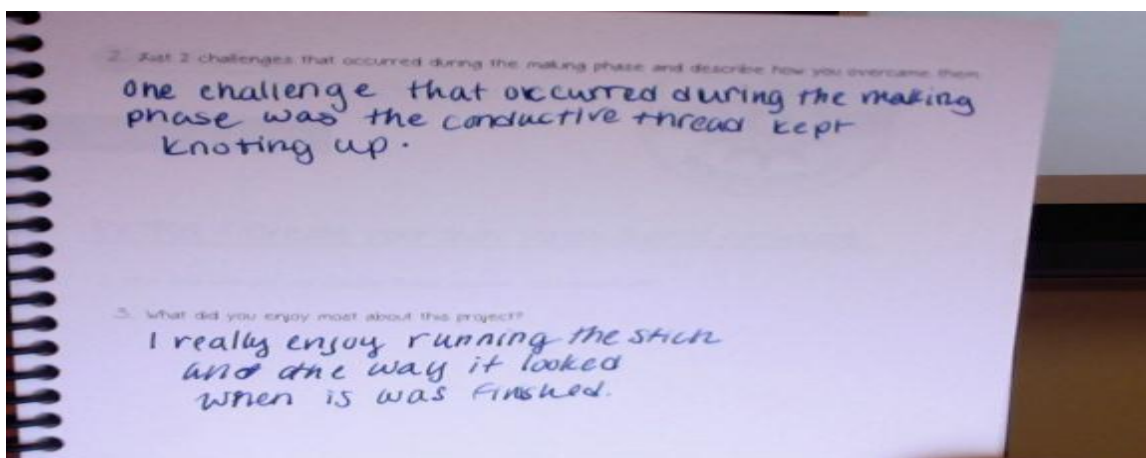 2. Just 2 challenges that occurred during the making phase and describe how you overcame them
One challenge that occurred during the making
phase was the conductive thread kept
knoting up.
3. What did you enjoy most about this project?
I really enjoy running the stich
and the way it looked
when is was finished.